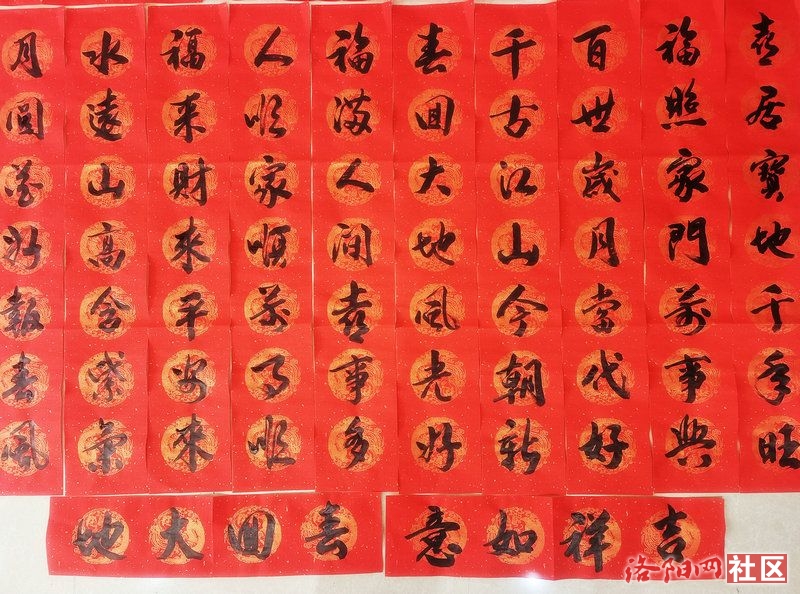 喜居寶地千年旺
福照家門萬事興
百世歲月當代好
千古江山今朝新
春回大地風光好
福滿人間喜事多
人順家順萬事順
福來財來平安來
水遠山高含紫氣
月圓花好報春風
吉祥如意
春回大地
洛阳网社区